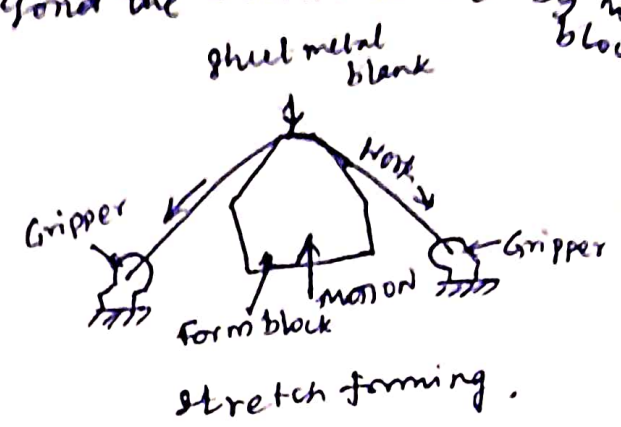 sheet metal
blank
Work
Gripper
Gripper
Motion
Form block
stretch forming.